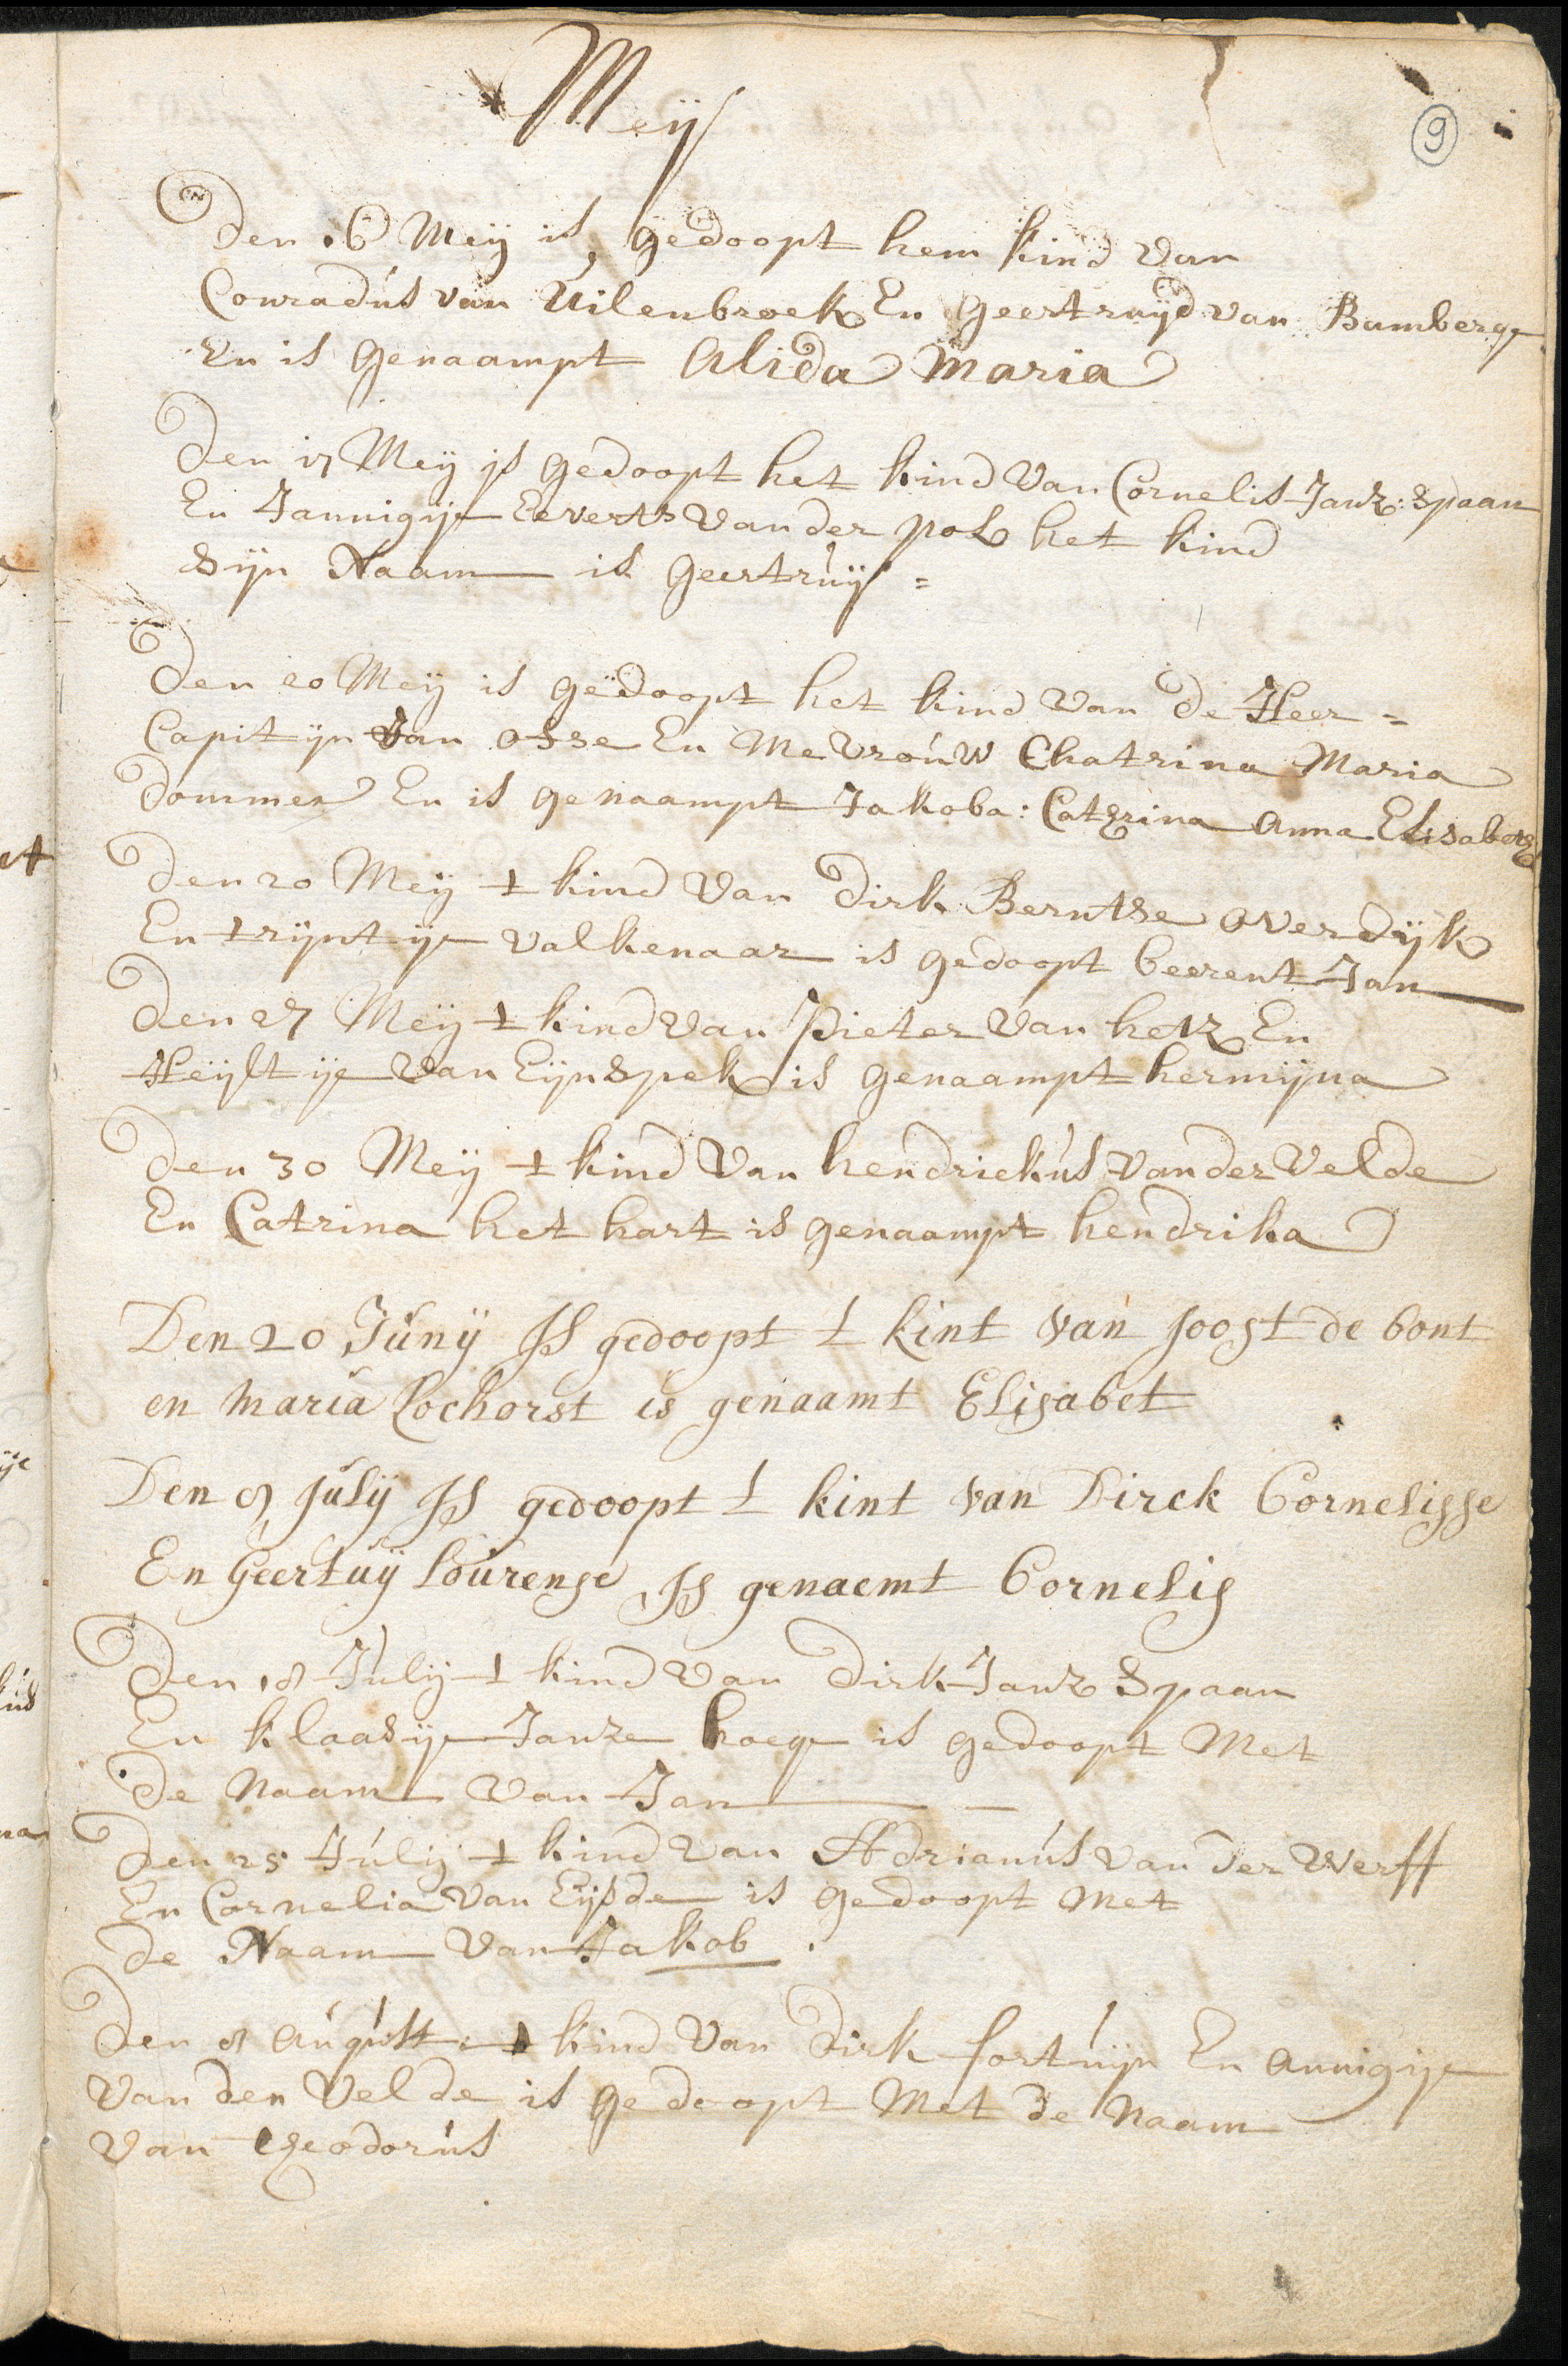 Meij
9
Den 16 Meij is gedoopt hem kind van
Conradús van Uilenbroek En geertruijd van Bamberge
En is genaampt Alida Maria
Den 17 Meij js gedoopt het kind Van Cornelis Janz: Spaan
En Jannigije Everts Van der pol het kind
Sijn Naam is geertruij =
Den 20 Meij is gedoopt het kind Van De Heer =
Capitijn Van osse En Mevroúw Chatrina Maria
Dommer En is genaampt Jakoba: Catherina Anna Elisabeth
Den 20 Meij t kind Van Dirk Berntse overdijk
En trijntije valkenaar is gedoopt beerent Jan
Den 27 Meij t kind Van Pieter Van hetz En
Heijltije Van Eijnspek is genaampt hermijna
Den 30 Meij t kind Van hendriekús Van der Velde
En Catrina het hart is genaampt hendrika
Den 20 Junij JS gedoopt t kint van Joost de bont
en maria Lochorst is genaamt Elisabet
Den 8 Julij JS gedoopt t kint van Dirck Cornelisse
En Geertuij Lourense JS genaemt Cornelis
Den 18 Julij t kind Van Dirk Janz Spaan
En klaasije Janze hoege is gedoopt Met
De Naam Van Jan
Den 25 Julij t kind Van Adrianús Van Der Werff
En Cornelia Van Eijsde is gedoopt Met
de Naam Van Jakob
Den 8 Augúst: t kind Van Dirk fortuijn En annigije
Van den Velde is gedoopt Met de Naam
Van theodorús